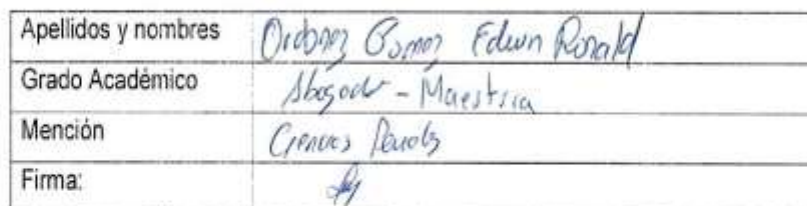 Apellidos y nombres Ordoñez Gomez Edwin Ronald
Grado Académico Abogado - Maestria
Mención Ciencias Penales
Firma: